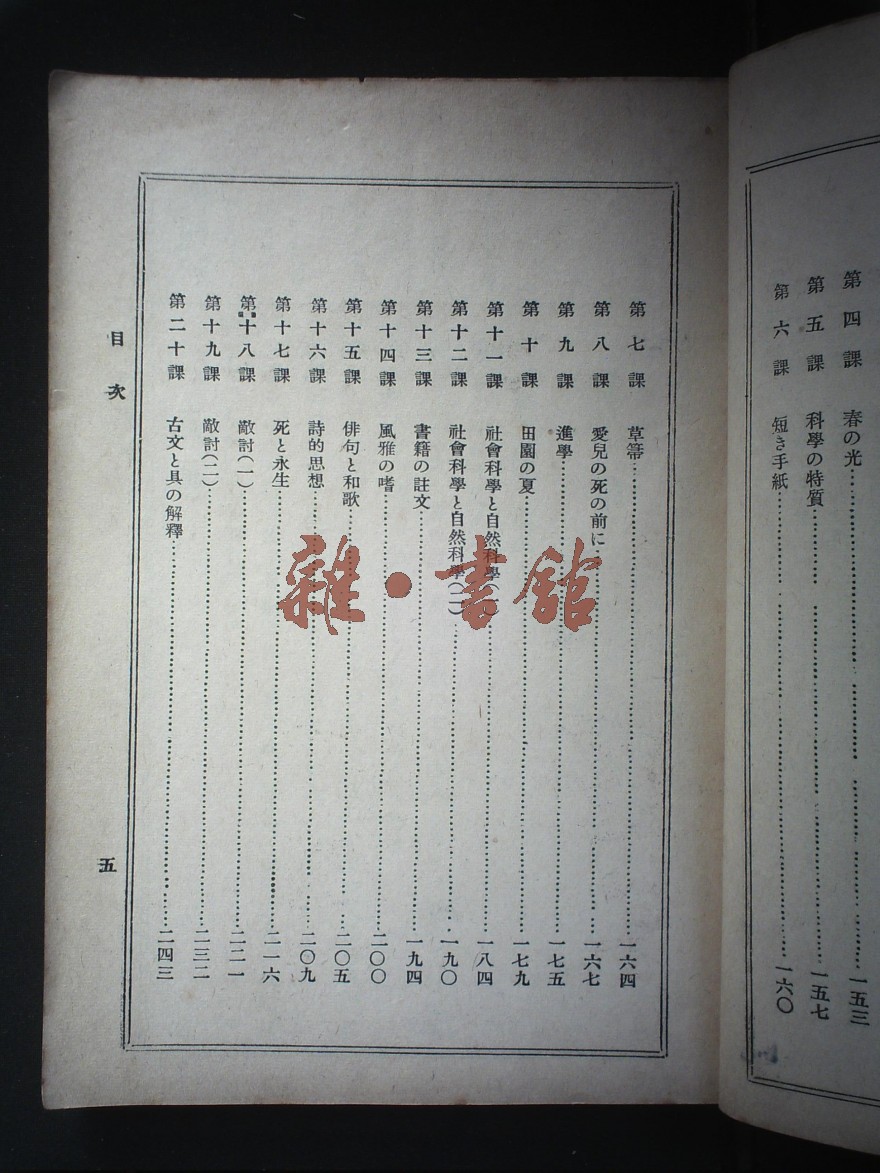 第四課 春の光 一五三
第五課 科學の特質 一五七
第六課 短き手紙 一六〇
第七課 草箒 一六四
第八課 愛兒の死の前に 一六七
第九課 進學 一七五
第十課 田園の夏 一七九
第十一課 社會科學と自然科學(一) 一八四
第十二課 社會科學と自然科學(二) 一九〇
第十三課 書籍の註文 一九四
第十四課 風雅の嗜 二〇〇
第十五課 俳句と和歌 二〇五
第十六課 詩的思想 二〇九
第十七課 死と永生 二一六
第十八課 敵討(一) 二二一
第十九課 敵討(二) 二三二
第二十課 古文と具の解釋 二四三
目次
五
雜·書館